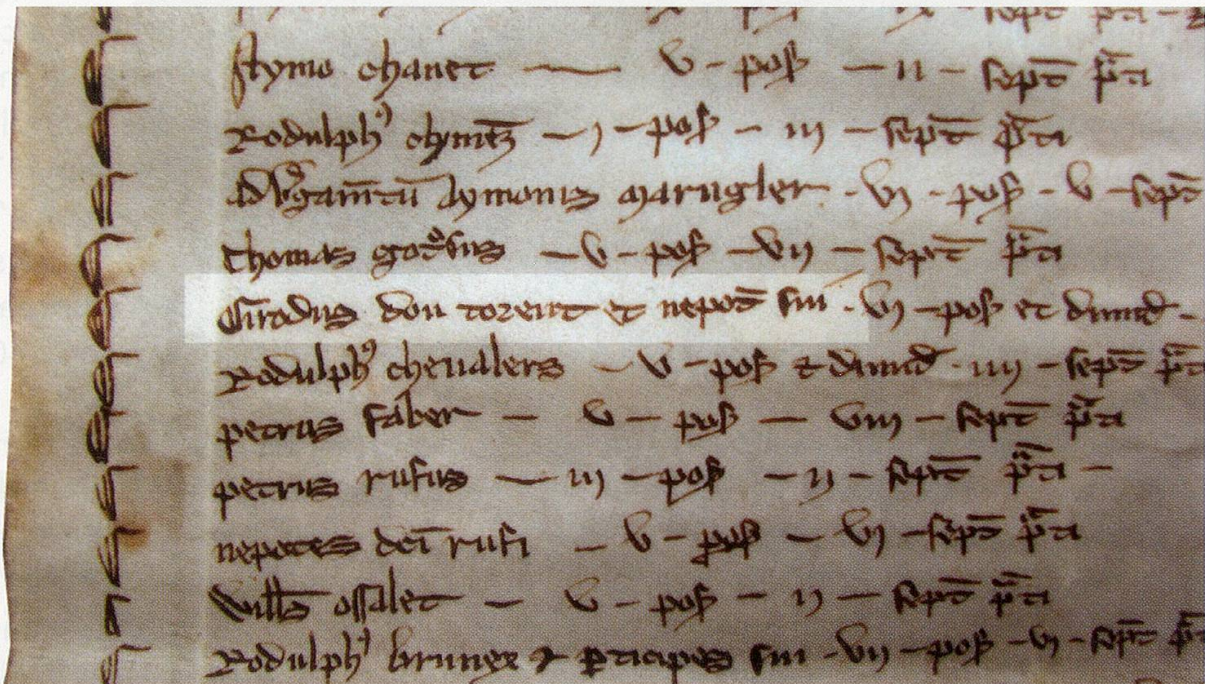 Aymo chanet — v – pos – ii – sept p̄ti
Rodulph⁹ chyme — i – pos – iii – sept̄ p̄ti
Aymonis marugler · vi · pos · v – sept̄
Thomas — v – pos – vii – sept̄ p̄ti
Girodus dou torent et nepot̄ sui · vi – pos et dimid –
Rodulph⁹ cheualers – v – pos et dimid · iiii – sept̄ p̄ti
petrus faber – v – pos – viii – sept̄ p̄ti
petrus rufus — iii – pos – ii – sept̄ p̄ti –
nepotes dc̄i rufi – v – pos – vi – sept̄ p̄ti
Will̄s ossalet – v – pos – ii – sept̄ p̄ti
Rodulph⁹ brunex et p̱ticipes sui · vii – pos – vi – sept̄